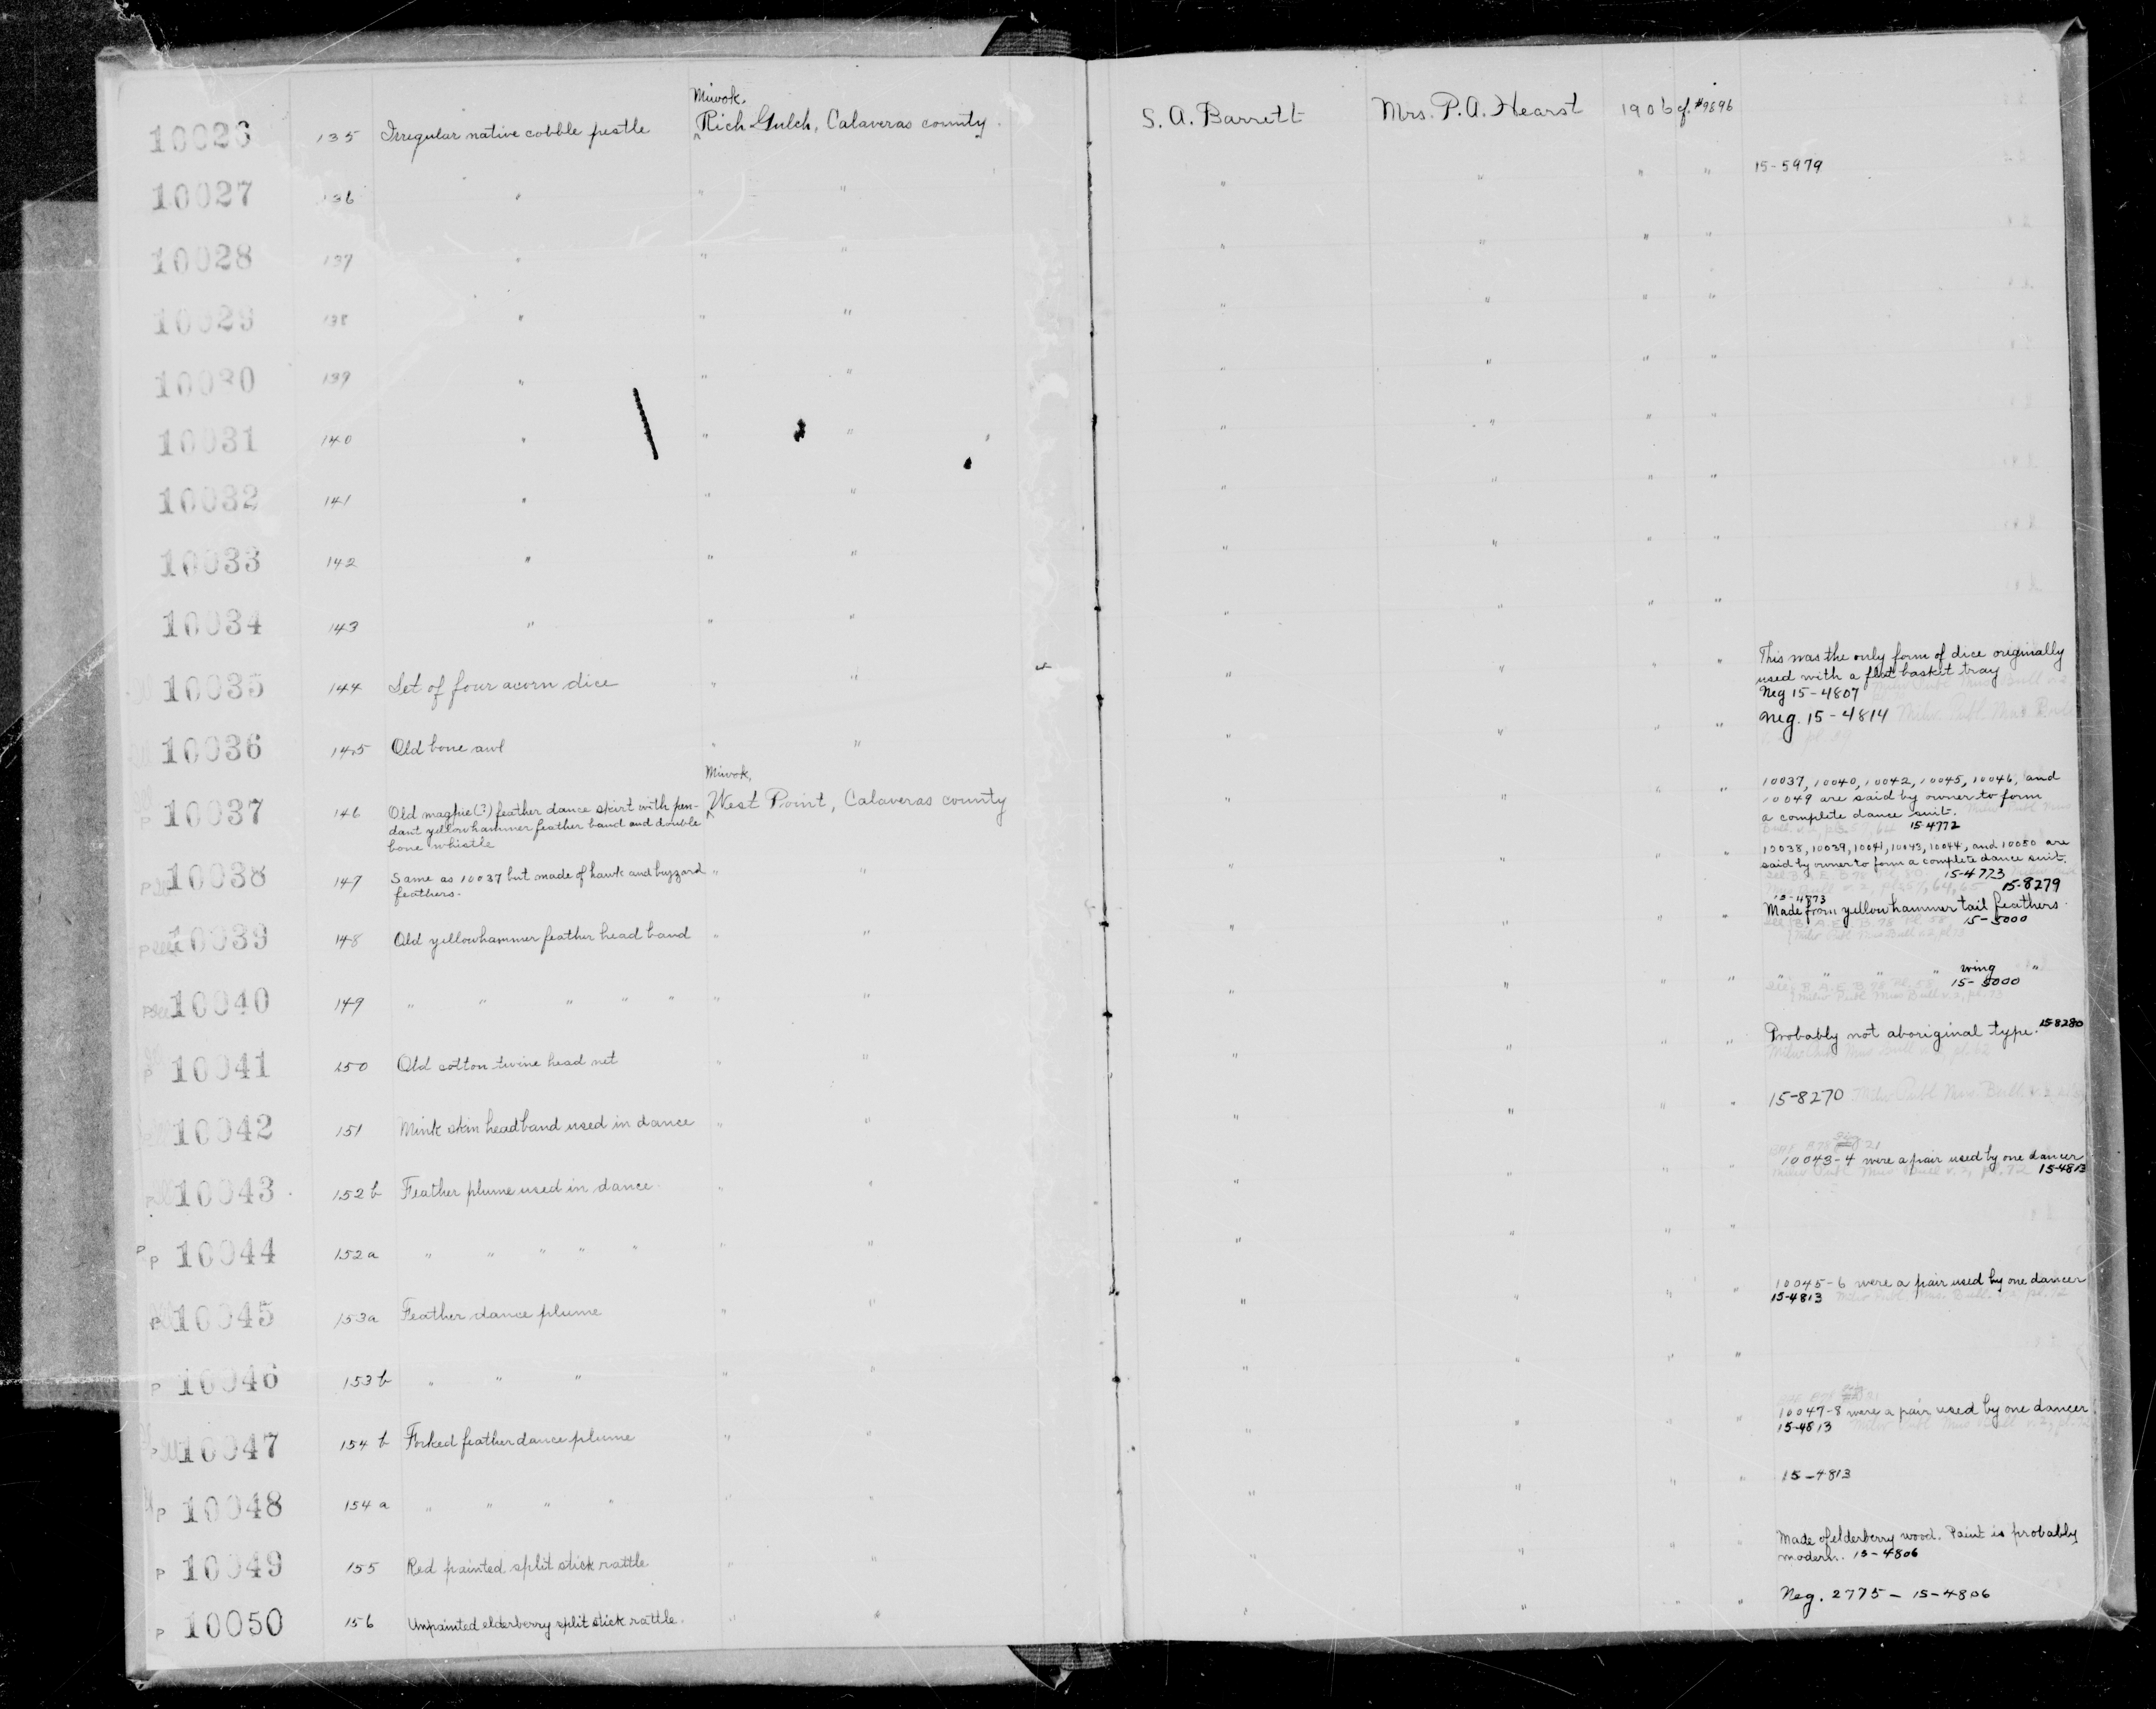 10026 135 Irregular native cobble pestle Miwok, Rich Gulch, Calaveras county. S. A. Barrett Mrs. P. A. Hearst 1906 cf. #9896
10027 136 " " " " " " " 15-5979
10028 137 " " " " " " "
10029 138 " " " " " " "
10030 139 " " " " " " "
10031 140 " " " " " " "
10032 141 " " " " " " "
10033 142 " " " " " " "
10034 143 " " " " " " "
10035 144 Set of four acorn dice " " " " " " This was the only form of dice originally
used with a flat basket tray
Neg 15-4807
10036 145 Old bone awl " " " " " " Neg. 15-4814 Milw. Publ. Mus. Bull
10037 146 Old magpie(?) feather dance skirt with pen-
dant yellowhammer feather band and double
bone whistle
Miwok,
West Point, Calaveras county " " " " 10037, 10040, 10042, 10045, 10046, and
10049 are said by owner to form
a complete dance suit.
15-4772
10038 147 Same as 10037 but made of hawk and buzzard
feathers. " " " " " " 10038, 10039, 10041, 10043, 10044, and 10050 are
said by owner to form a complete dance suit.
15-4773
15-8279
10039 148 Old yellowhammer feather head band " " " " " " 15-4873
Made from yellowhammer tail feathers.
15-5000
10040 149 " " " " " " " " " " " " " " " wing "
15-5000
10041 150 Old cotton twine head net " " " " " " Probably not aboriginal type. 15-8280
10042 151 Mink skin headband used in dance " " " " " " 15-8270 Milw Publ Mus. Bull. v.2
10043 152b Feather plume used in dance. " " " " " " 10043-4 were a pair used by one dancer
15-4813
P P 10044 152a " " " " " " " " " " "
10045 153a Feather dance plume " " " " " " 10045-6 were a pair used by one dancer
15-4813
P 10046 153b " " " " " " " " "
10047 154b Forked feather dance plume " " " " " " 10047-8 were a pair used by one dancer
15-4813
P 10048 154a " " " " " " " " " " 15-4813
P 10049 155 Red painted split stick rattle " " " " " " Made of elderberry wood. Paint is probably
modern. 15-4806
P 10050 156 Unpainted elderberry split stick rattle. " " " " " " Neg. 2775 - 15-4806